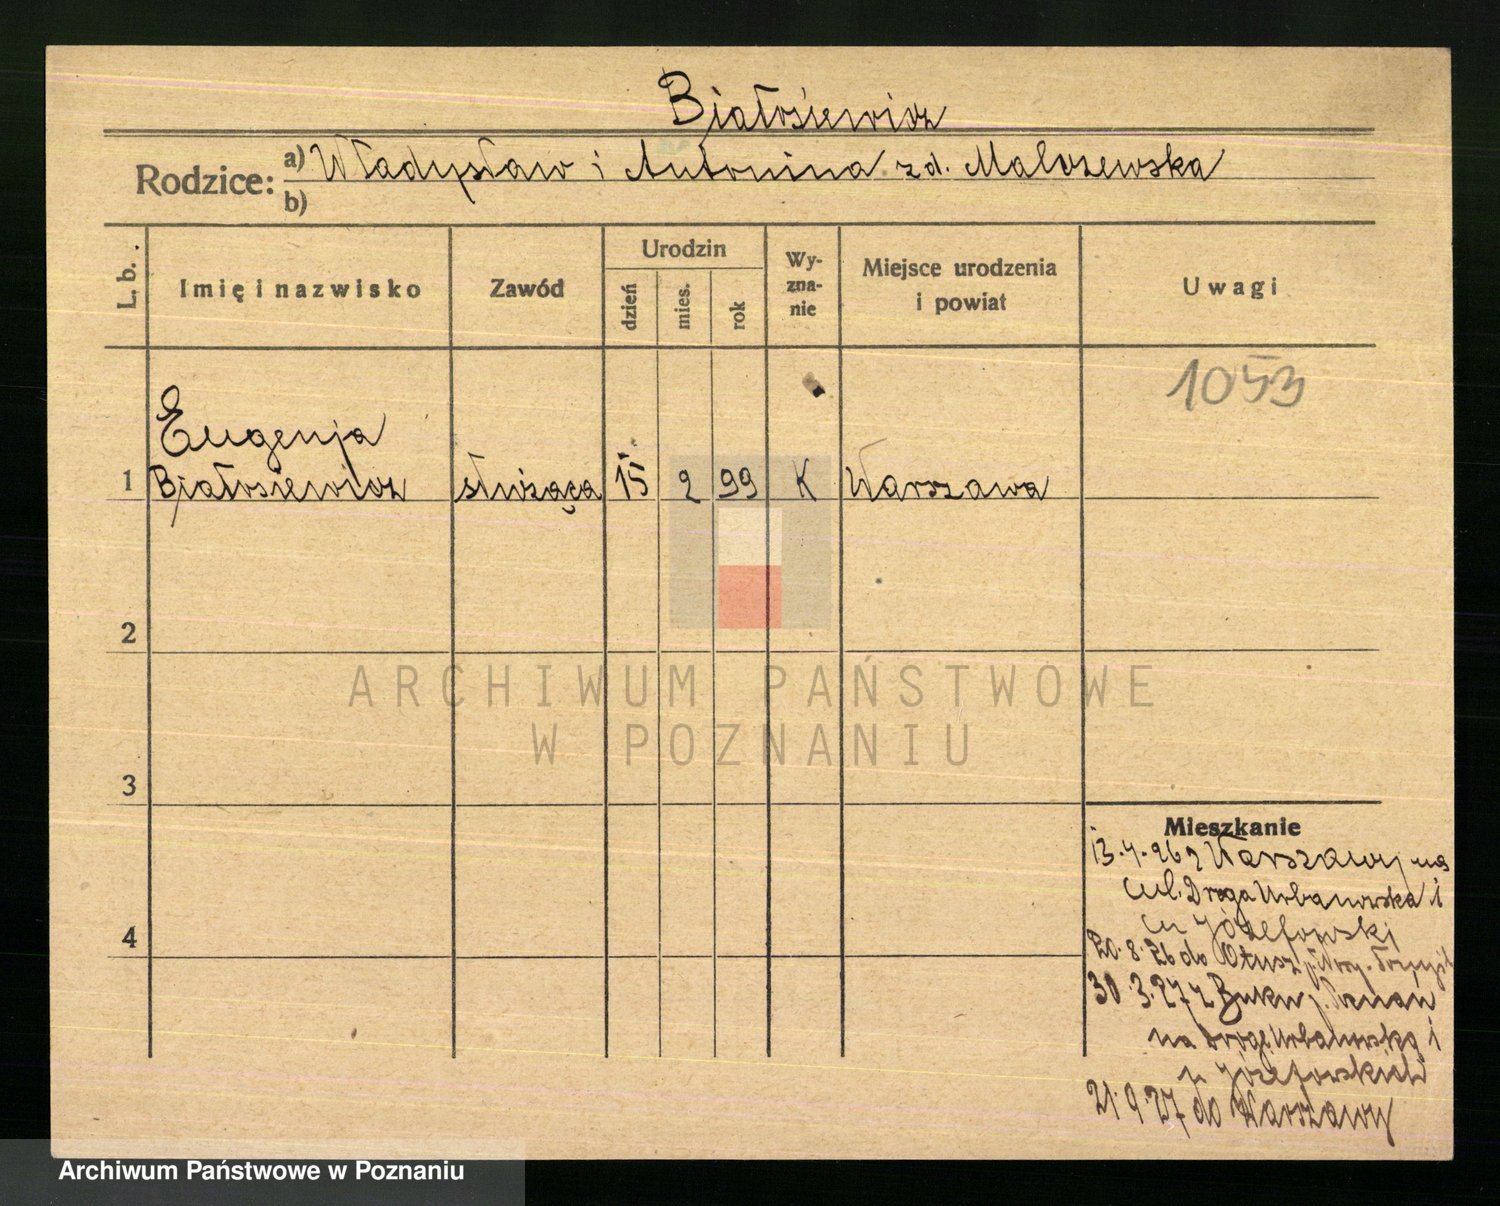 Białosiewicz
Rodzice: a) Władysław i Antonina zd. Malozewska
b)
L. b.
Imię i nazwisko
Zawód
Urodzin
dzień
mies.
rok
Wy-
zna-
nie
Miejsce urodzenia
i powiat
Uwagi
1053
Eugenja
1 Białosiewicz służąca 15 2 99 K Warszawa
2
ARCHIWUM PAŃSTWOWE
W POZNANIU
3
Mieszkanie
13.4.26 z Warszawy na
ul. Droga Urbanowska 1
u Józefowski
4
20.8.26 do Otusz
30.3.27 z Buku p. Poznań
na Drogę Urbanowską 1
u Józefowskich
21.9.27 do Warszawy
Archiwum Państwowe w Poznaniu